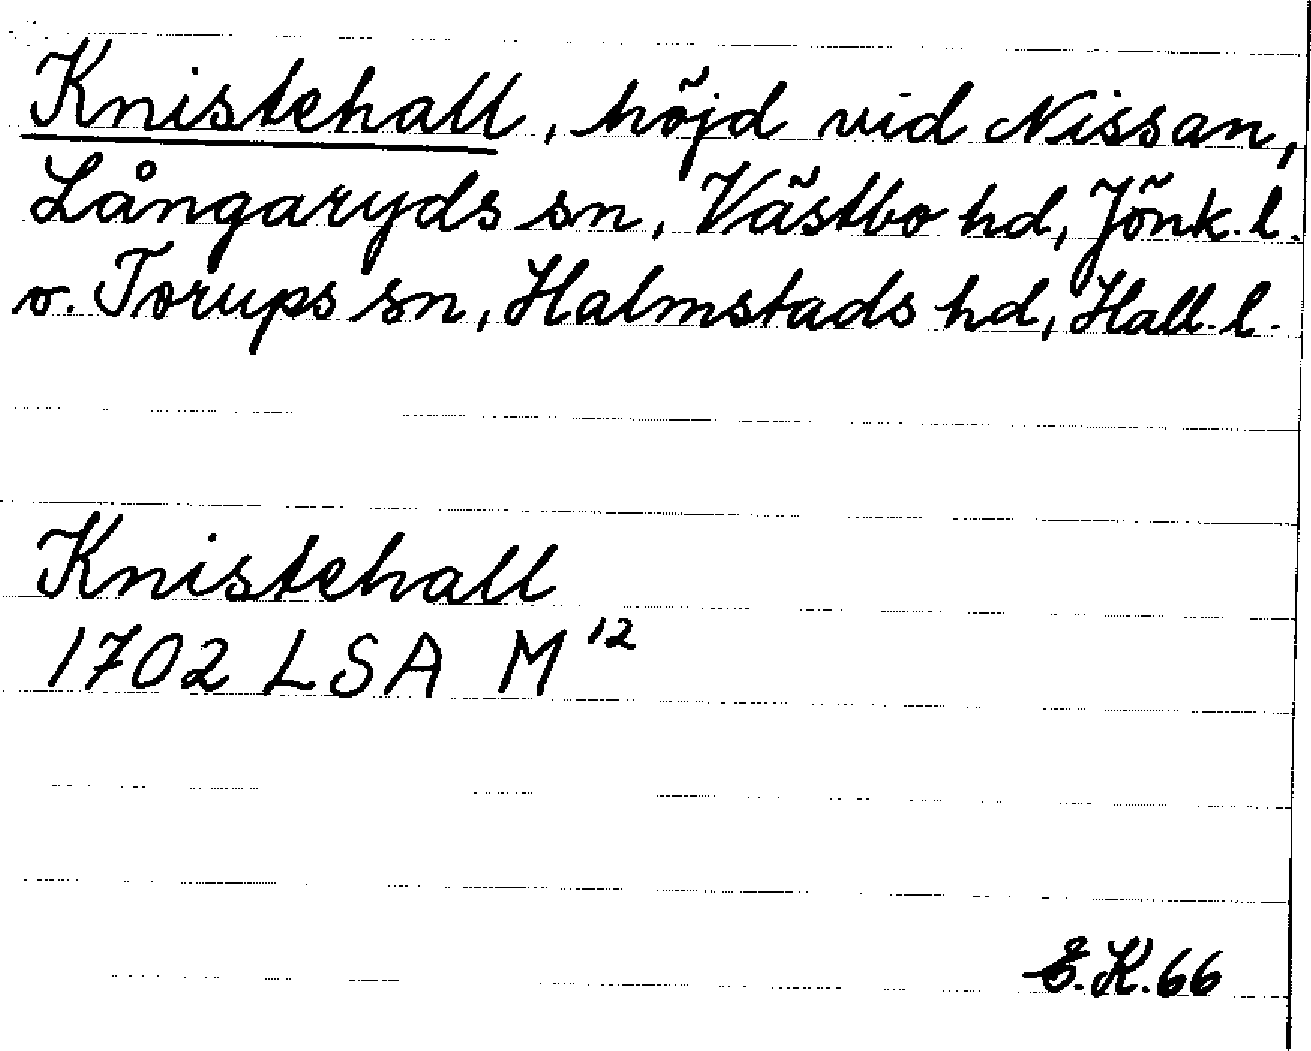 Knistehall, höjd vid Nissan,
Långaryds sn, Västbo hd, Jönk. l.
o. Torups sn, Halmstads hd, Hall. l.
Knistehall
1702 LSA M¹²
E.K.66